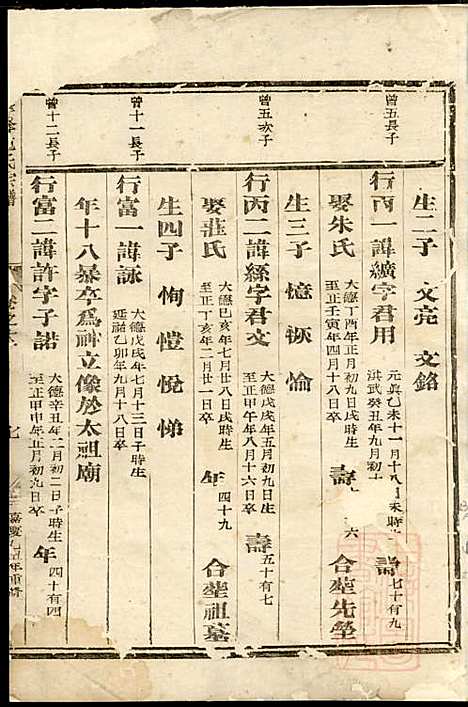 生二子 文亮 文銘
曾五長子
行丙一諱纘字君用 元貞乙未十一月十八日未時 洪武癸丑年九月初十 壽七十有九
娶朱氏 大德丁酉年正月初九日戌時生 至正壬寅年四月初八日卒 壽 六 合塋先塋
生三子 憶 恢 愉
曾五次子
行丙二諱綠字君文 大德戊戌年五月初九日生 至正甲午年八月十六日卒 壽五十有七
娶莊氏 大德己亥年七月廿八日戌時生 至正丁亥年二月廿一日卒 年四十九 合塋祖墓
生四子 恂 愷 悅 悌
曾十一長子
行富一諱詠 大德戊戌年七月十三日子時生 延祐乙卯年九月十八日卒
年十八暴卒為神立像於太祖廟
曾十二長子
行富二諱許字子諾 大德辛丑年二月初二日子時生 至正甲申年正月初九日卒 年四十有四
氏宗譜 卷之 七 嘉慶 年重修